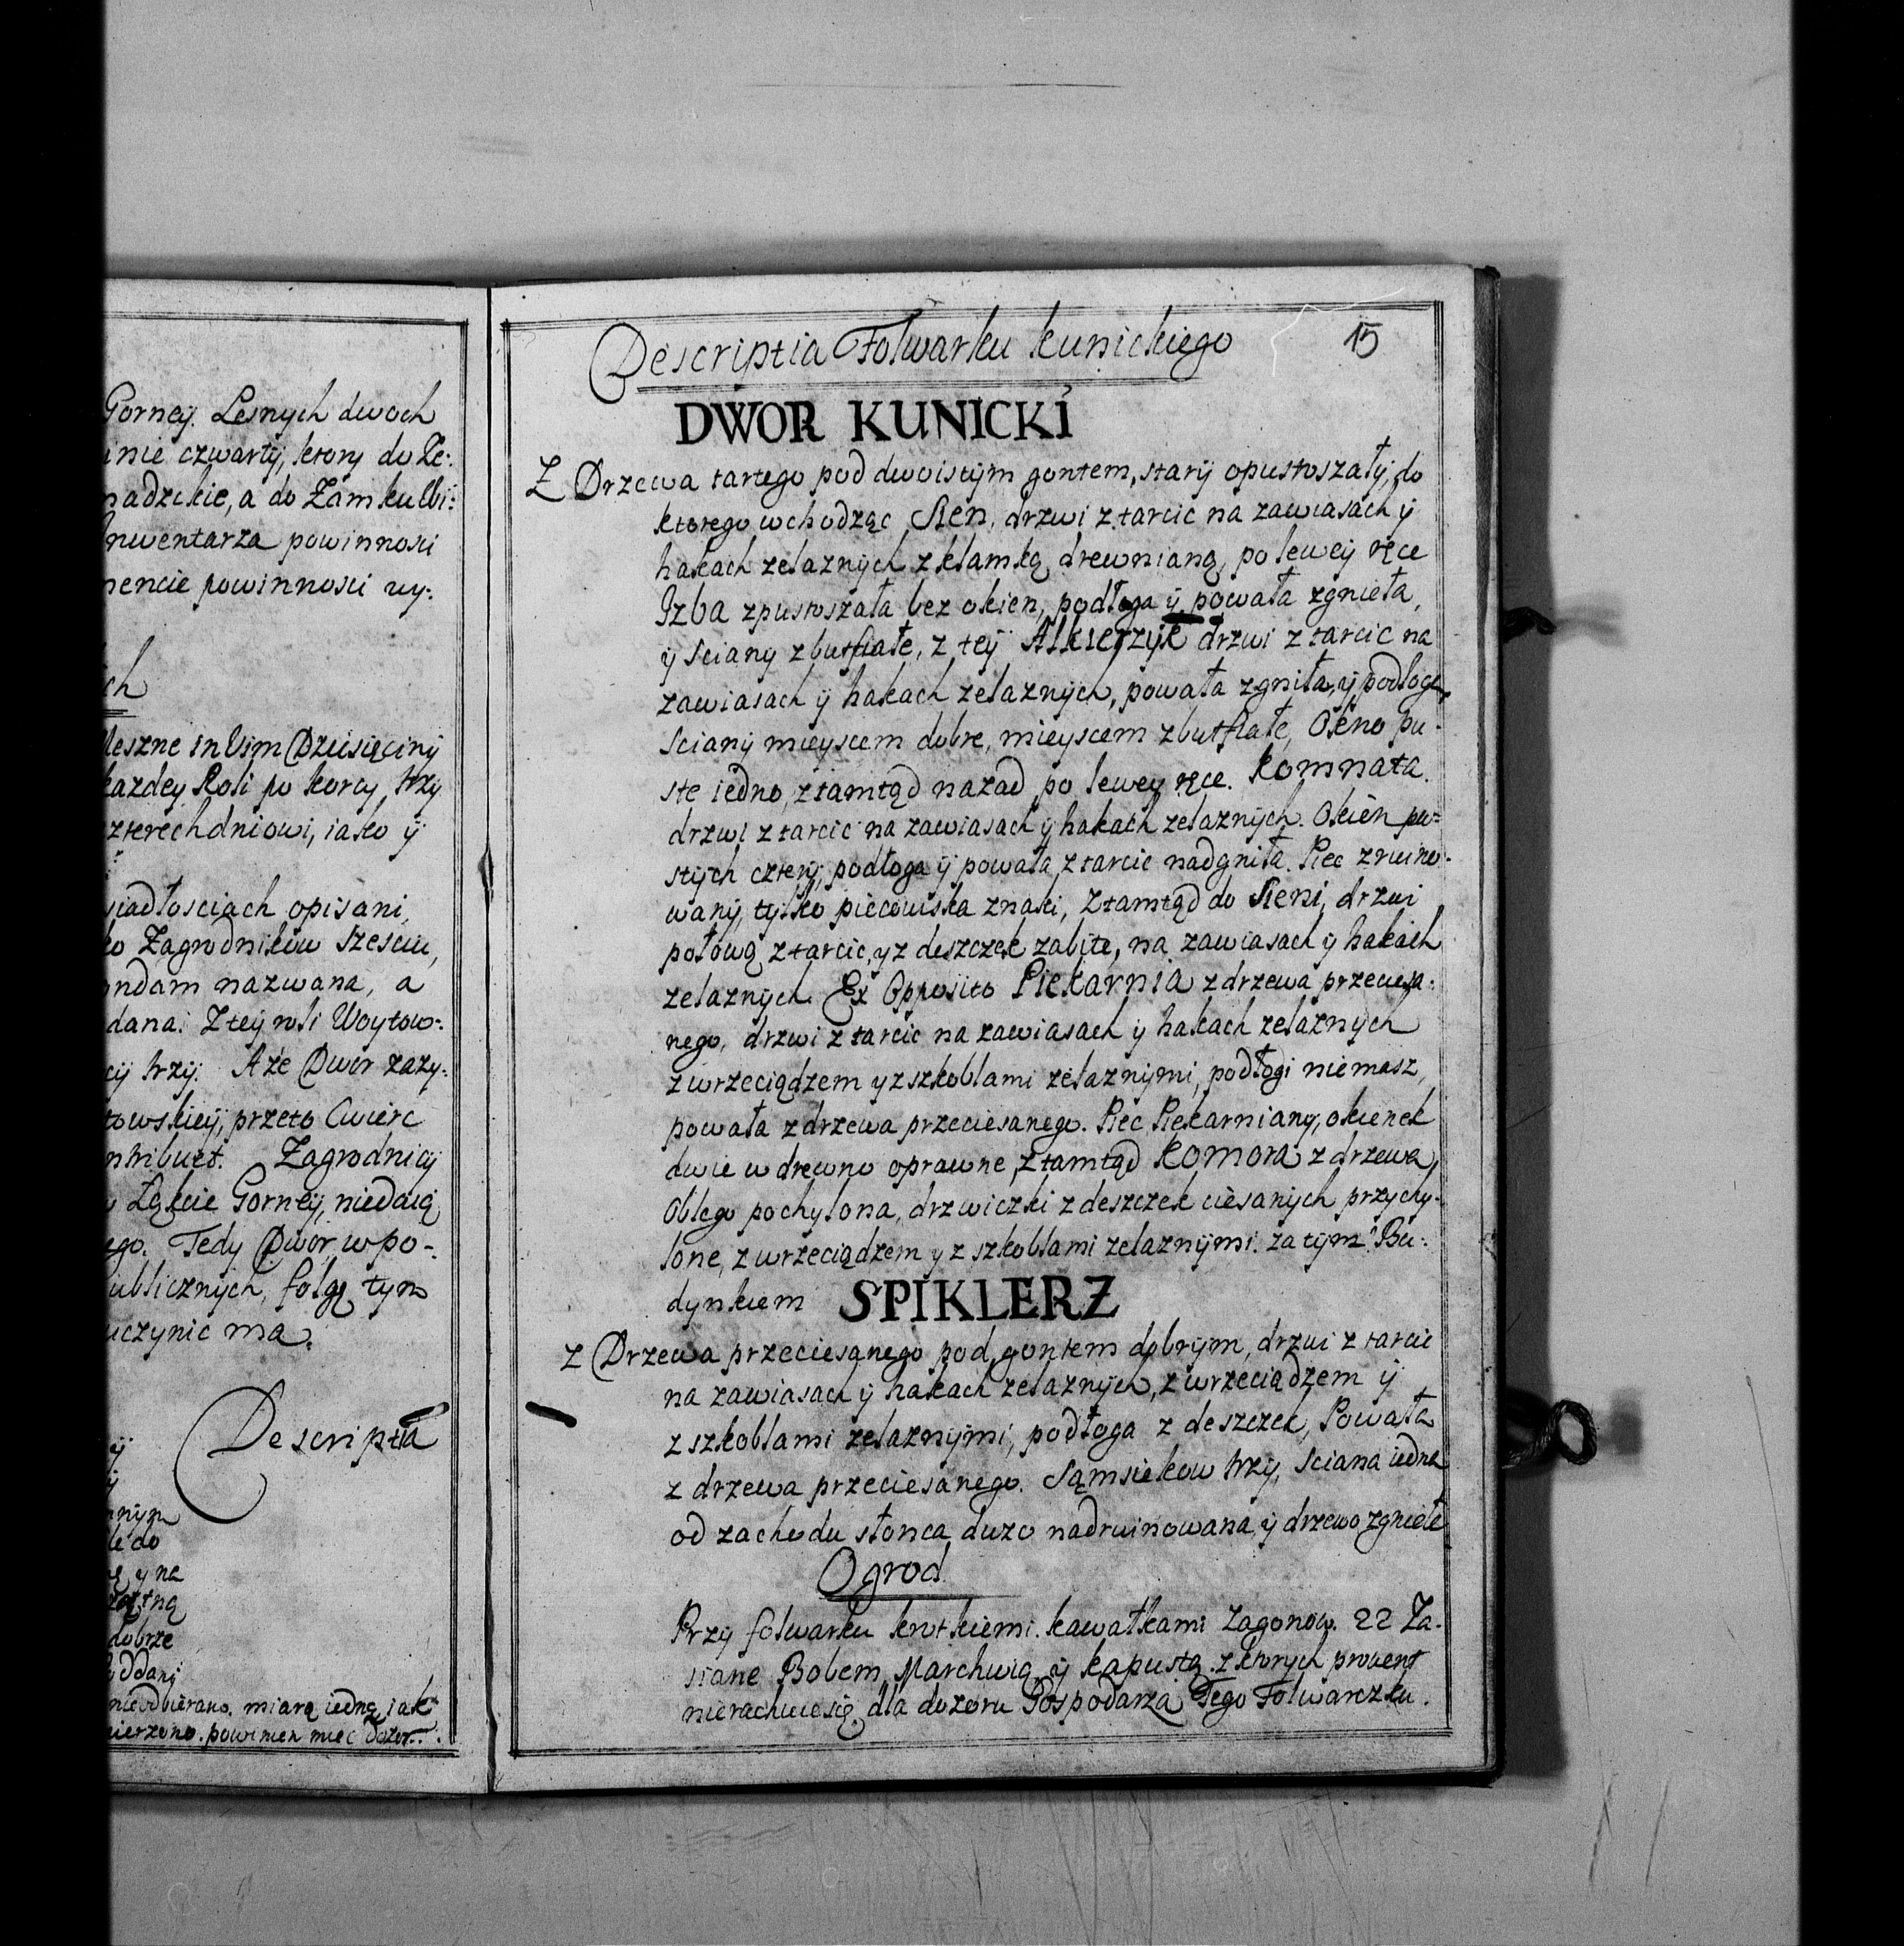 Gorney. Lesnych dwoch
inie czwarty, ktory do Ze:
nadzkie, a do Zamku lbi:
Inwentarza powinnosci
mencie powinnosci wy:
ch
Meszne in Vim Dziesięciny
kazdey Roli po korcy, trzy
czterechdniowi, iako ÿ
siadłosciach opisani,
ko Zagrodnikow szesciu,
ondam nazwana, a
dana: Z teÿ roli Woytow:
cy trzy: A że Dwor zazy:
towskieÿ, przeto Cwierc
ntribuet. Zagrodnicy
y Łąkcie Gorney, niedaią
ego. Tedy Dwor, w po:
ublicznych, folgę tym
uczynic ma.
Descriptia
ÿ
nnym
le do
ę y na
dobrze
Poddani
nie odbierano. miarą iedną, iak
mierzono. powinien miec dozor.
Descriptia Folwarku Kunickiego
15
DWOR KUNICKI
Z Drzewa tartego pod dwoistym gontem, stary opustoszały, do
ktorego wchodząc Sien, drzwi z tarcic na zawiasach ÿ
hakach zelaznych z klamką drewnianą, po lewey ręce
Izba zpustoszała bez okien, podłoga ÿ powała zgnieła,
ÿ sciany zbutfiałe, z teÿ Alkierzyk drzwi z tarcic na
zawiasach ÿ hakach zelaznych, powała zgniła, ÿ podłoga,
sciany mieyscem dobre, mieyscem zbutfiałe, Okno pu:
ste iedno, ztamtąd nazad po lewey ręce. Komnata.
drzwi z tarcic na zawiasach ÿ hakach zelaznych. Okien pu:
stych cztery, podłoga ÿ powała z tarcic nadgniła. Piec zruino:
wany, tylko piecowiska znaki, Ztamtąd do Sieni, drzwi
połową z tarcic, y z deszczek zabite, na zawiasach ÿ hakach
zelaznych. Ex Opposito Piekarnia z drzewa przeciesa:
nego, drzwi z tarcic na zawiasach ÿ hakach zelaznych
z wrzeciądzem y z szkoblami zelaznymi, podłogi niemasz,
powała z drzewa przeciesanego. Piec Piekarniany, okienek
dwie w drewno oprawne, ztamtąd Komora z drzewa
Oblego pochylona, drzwiczki z deszczek ciesanych przychy:
lone, z wrzeciądzem y z szkoblami zelaznymi. za tym Bu:
dynkiem SPIKLERZ
Z Drzewa przeciesanego pod gontem dobrym, drzwi z tarcic
na zawiasach ÿ hakach zelaznych, z wrzeciądzem ÿ
z szkoblami zelaznymi, podłoga z deszczek, Powała
z drzewa przeciesanego. Sąmsiekow trzy, sciana iedna
od zachodu słonca duzo nadruinowana, ÿ drzewo zgniełe
Ogrod
Przy folwarku krotkiemi. kawałkami Zagonow. 22 Za:
siane Bobem, Marchwią ÿ kapustą. z ktorych prowent
nierachuie się, dla dozoru Gospodarza Tego Folwarczku.